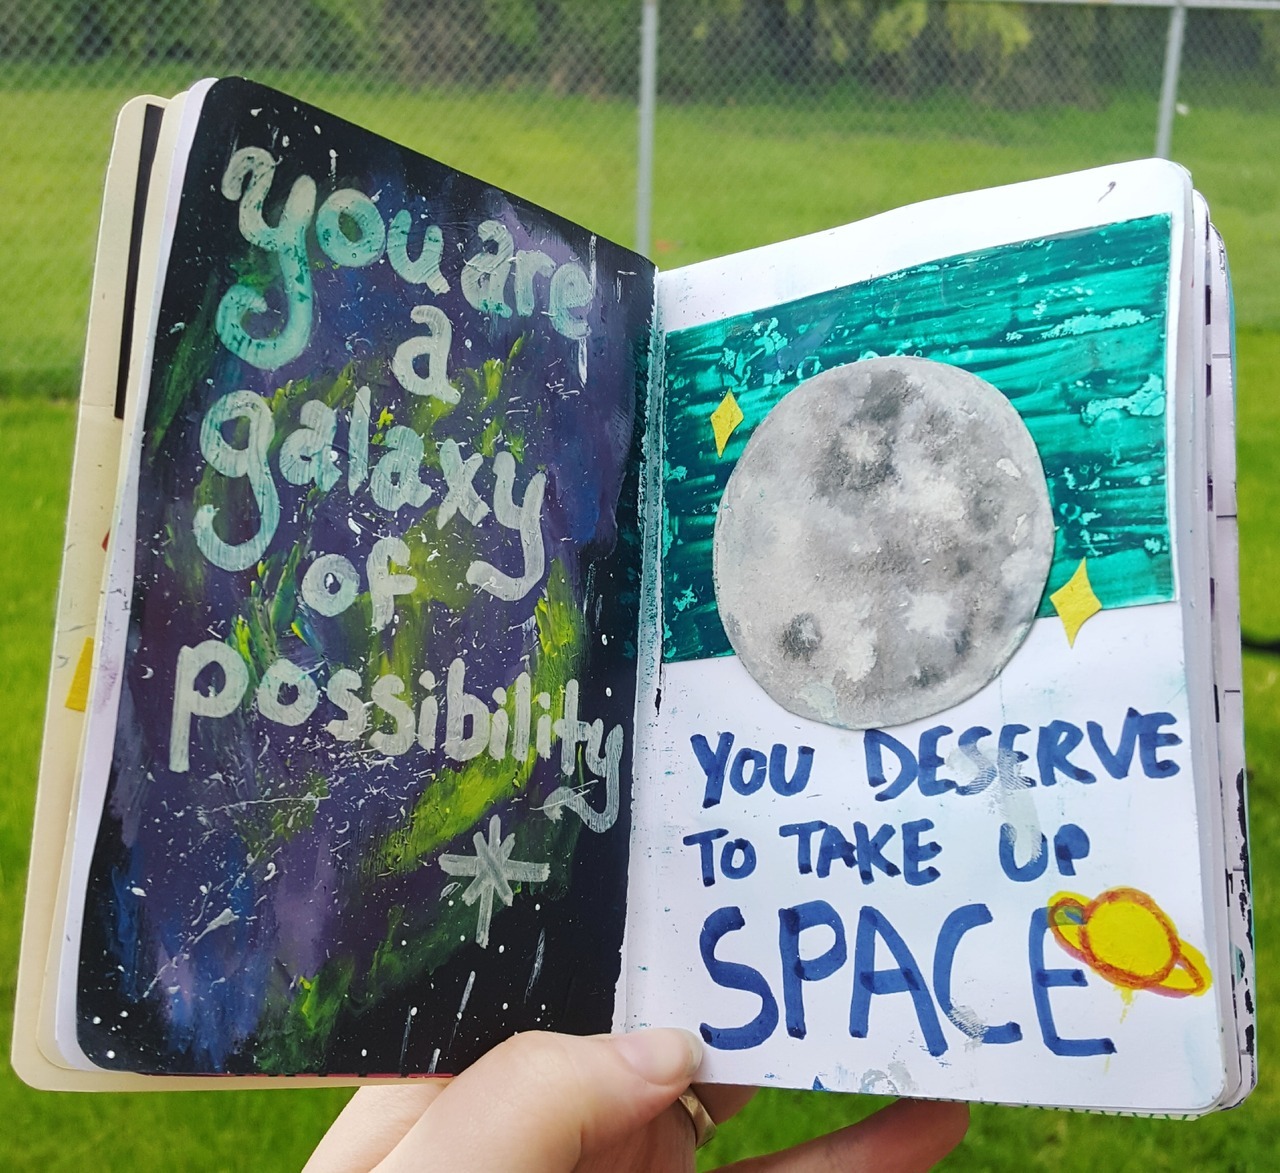 you are
a
galaxy
of
possibility
YOU DESERVE
TO TAKE UP
SPACE